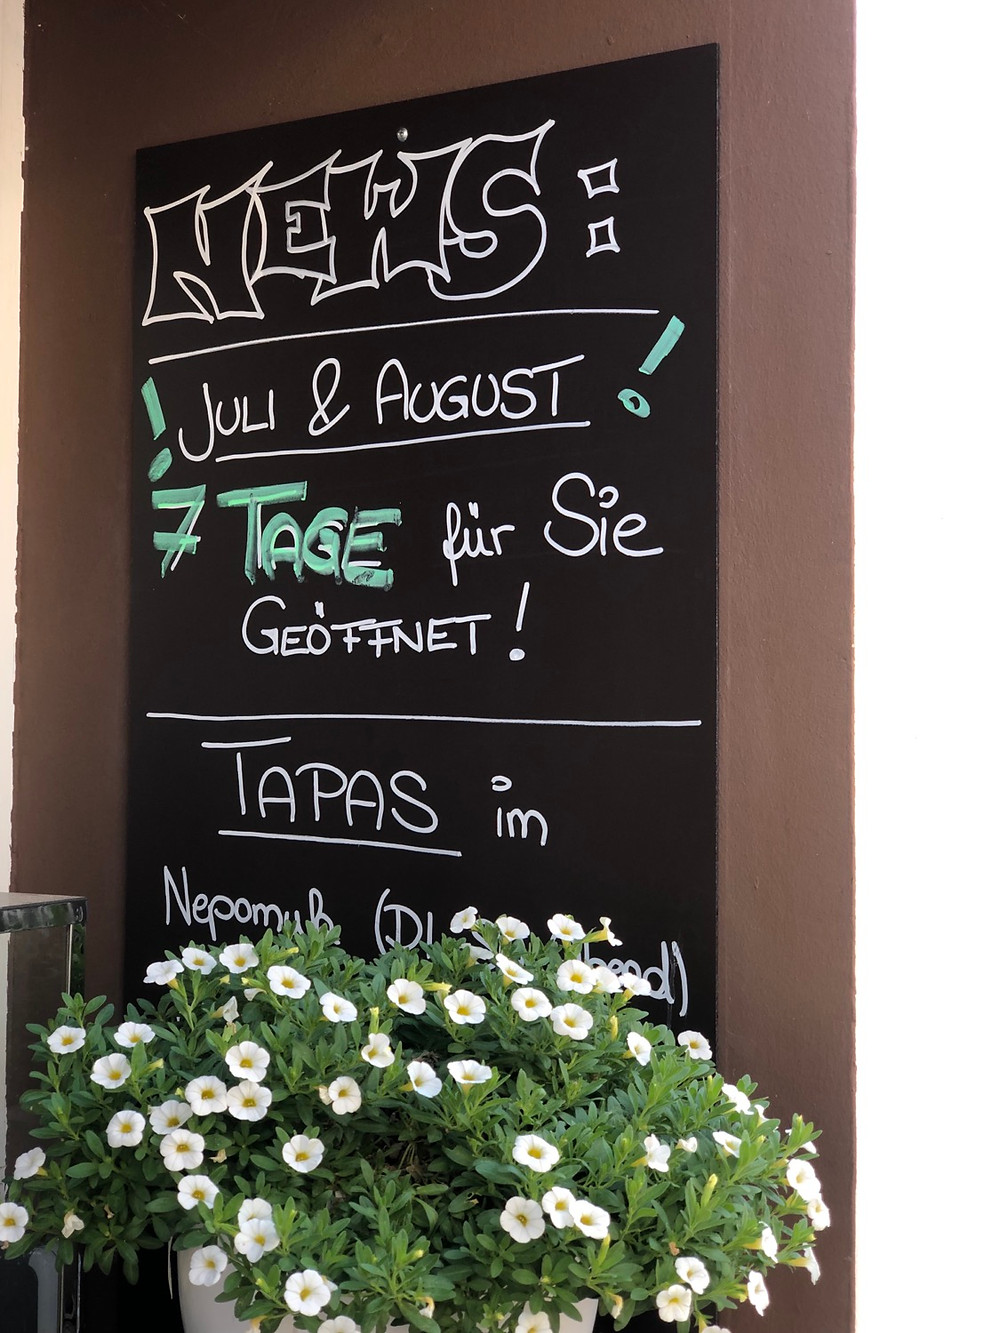 NEWS:
! JULI & AUGUST !
7 TAGE für Sie
GEÖFFNET!
TAPAS im
Nepomuk